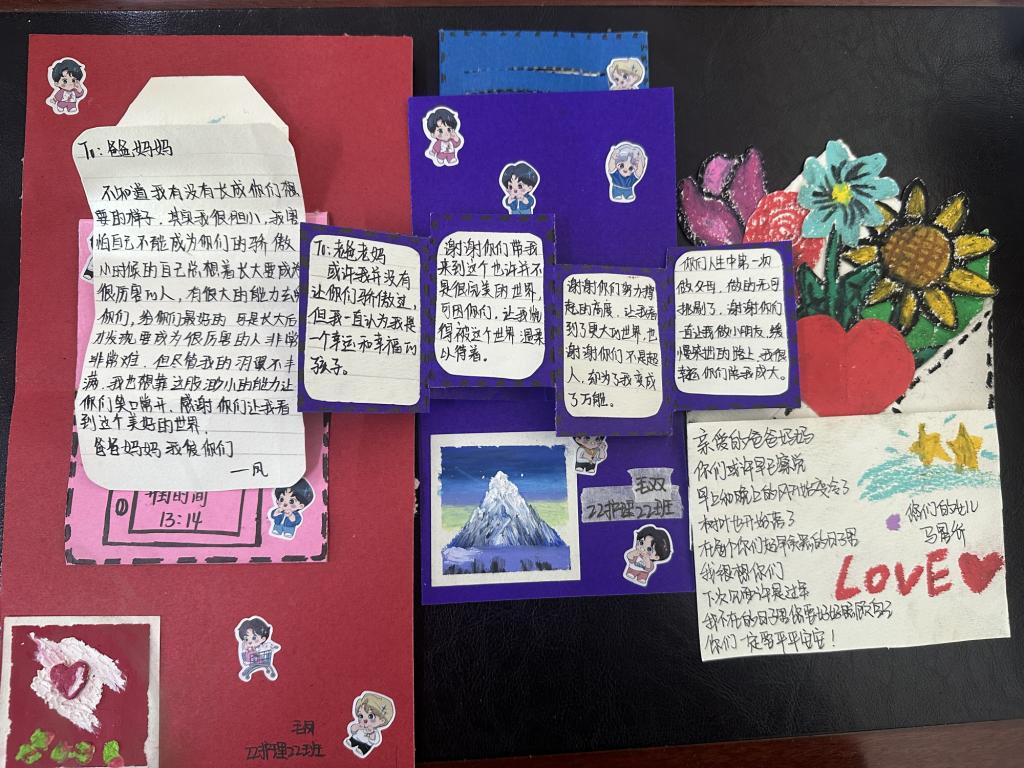 To: 爸爸妈妈
不知道我有没有长成你们想
要的样子. 其实我很胆小, 我害
怕自己不能成为你们的骄傲
小时候的自己总想着长大要成为
很厉害的人, 有很大的能力去
你们, 给你们最好的 可是长大后
才发现要成为很厉害的人非常
非常难. 但尽管我的羽翼不丰
满, 我也想靠这股功小的能力让
你们笑口常开、感谢你们让我看
到这个美好的世界.
爸爸妈妈我爱你们
一凡
时间
13:14
毛双
22护理22班
To: 老爸老妈
或许我并没有
让你们骄傲过,
但我一直认为我是
一个幸运和幸福的
孩子。
谢谢你们带我
来到这个也许并不
是很完美的世界,
可因你们, 让我觉
得被这个世界温柔
以待着。
谢谢你们努力撑
起的高度, 让我看
到了更大的世界, 也
谢谢你们不是超
人, 却为了我变成
了万能。
你们人生中第一次
做父母, 做的无可
挑剔了, 谢谢你们
一直让我做小朋友, 缓
慢来世的路上, 我很
幸运你们陪我成大。
毛双
22护理22班
亲爱的爸爸妈妈
你们或许早已察觉
早上和晚上的风开始变冷了
树叶也开始落了
我很想你们
下次见面许是过年
我不在的日子里你们要好好照顾自己
你们一定要平平安安!
你们的女儿
LOVE